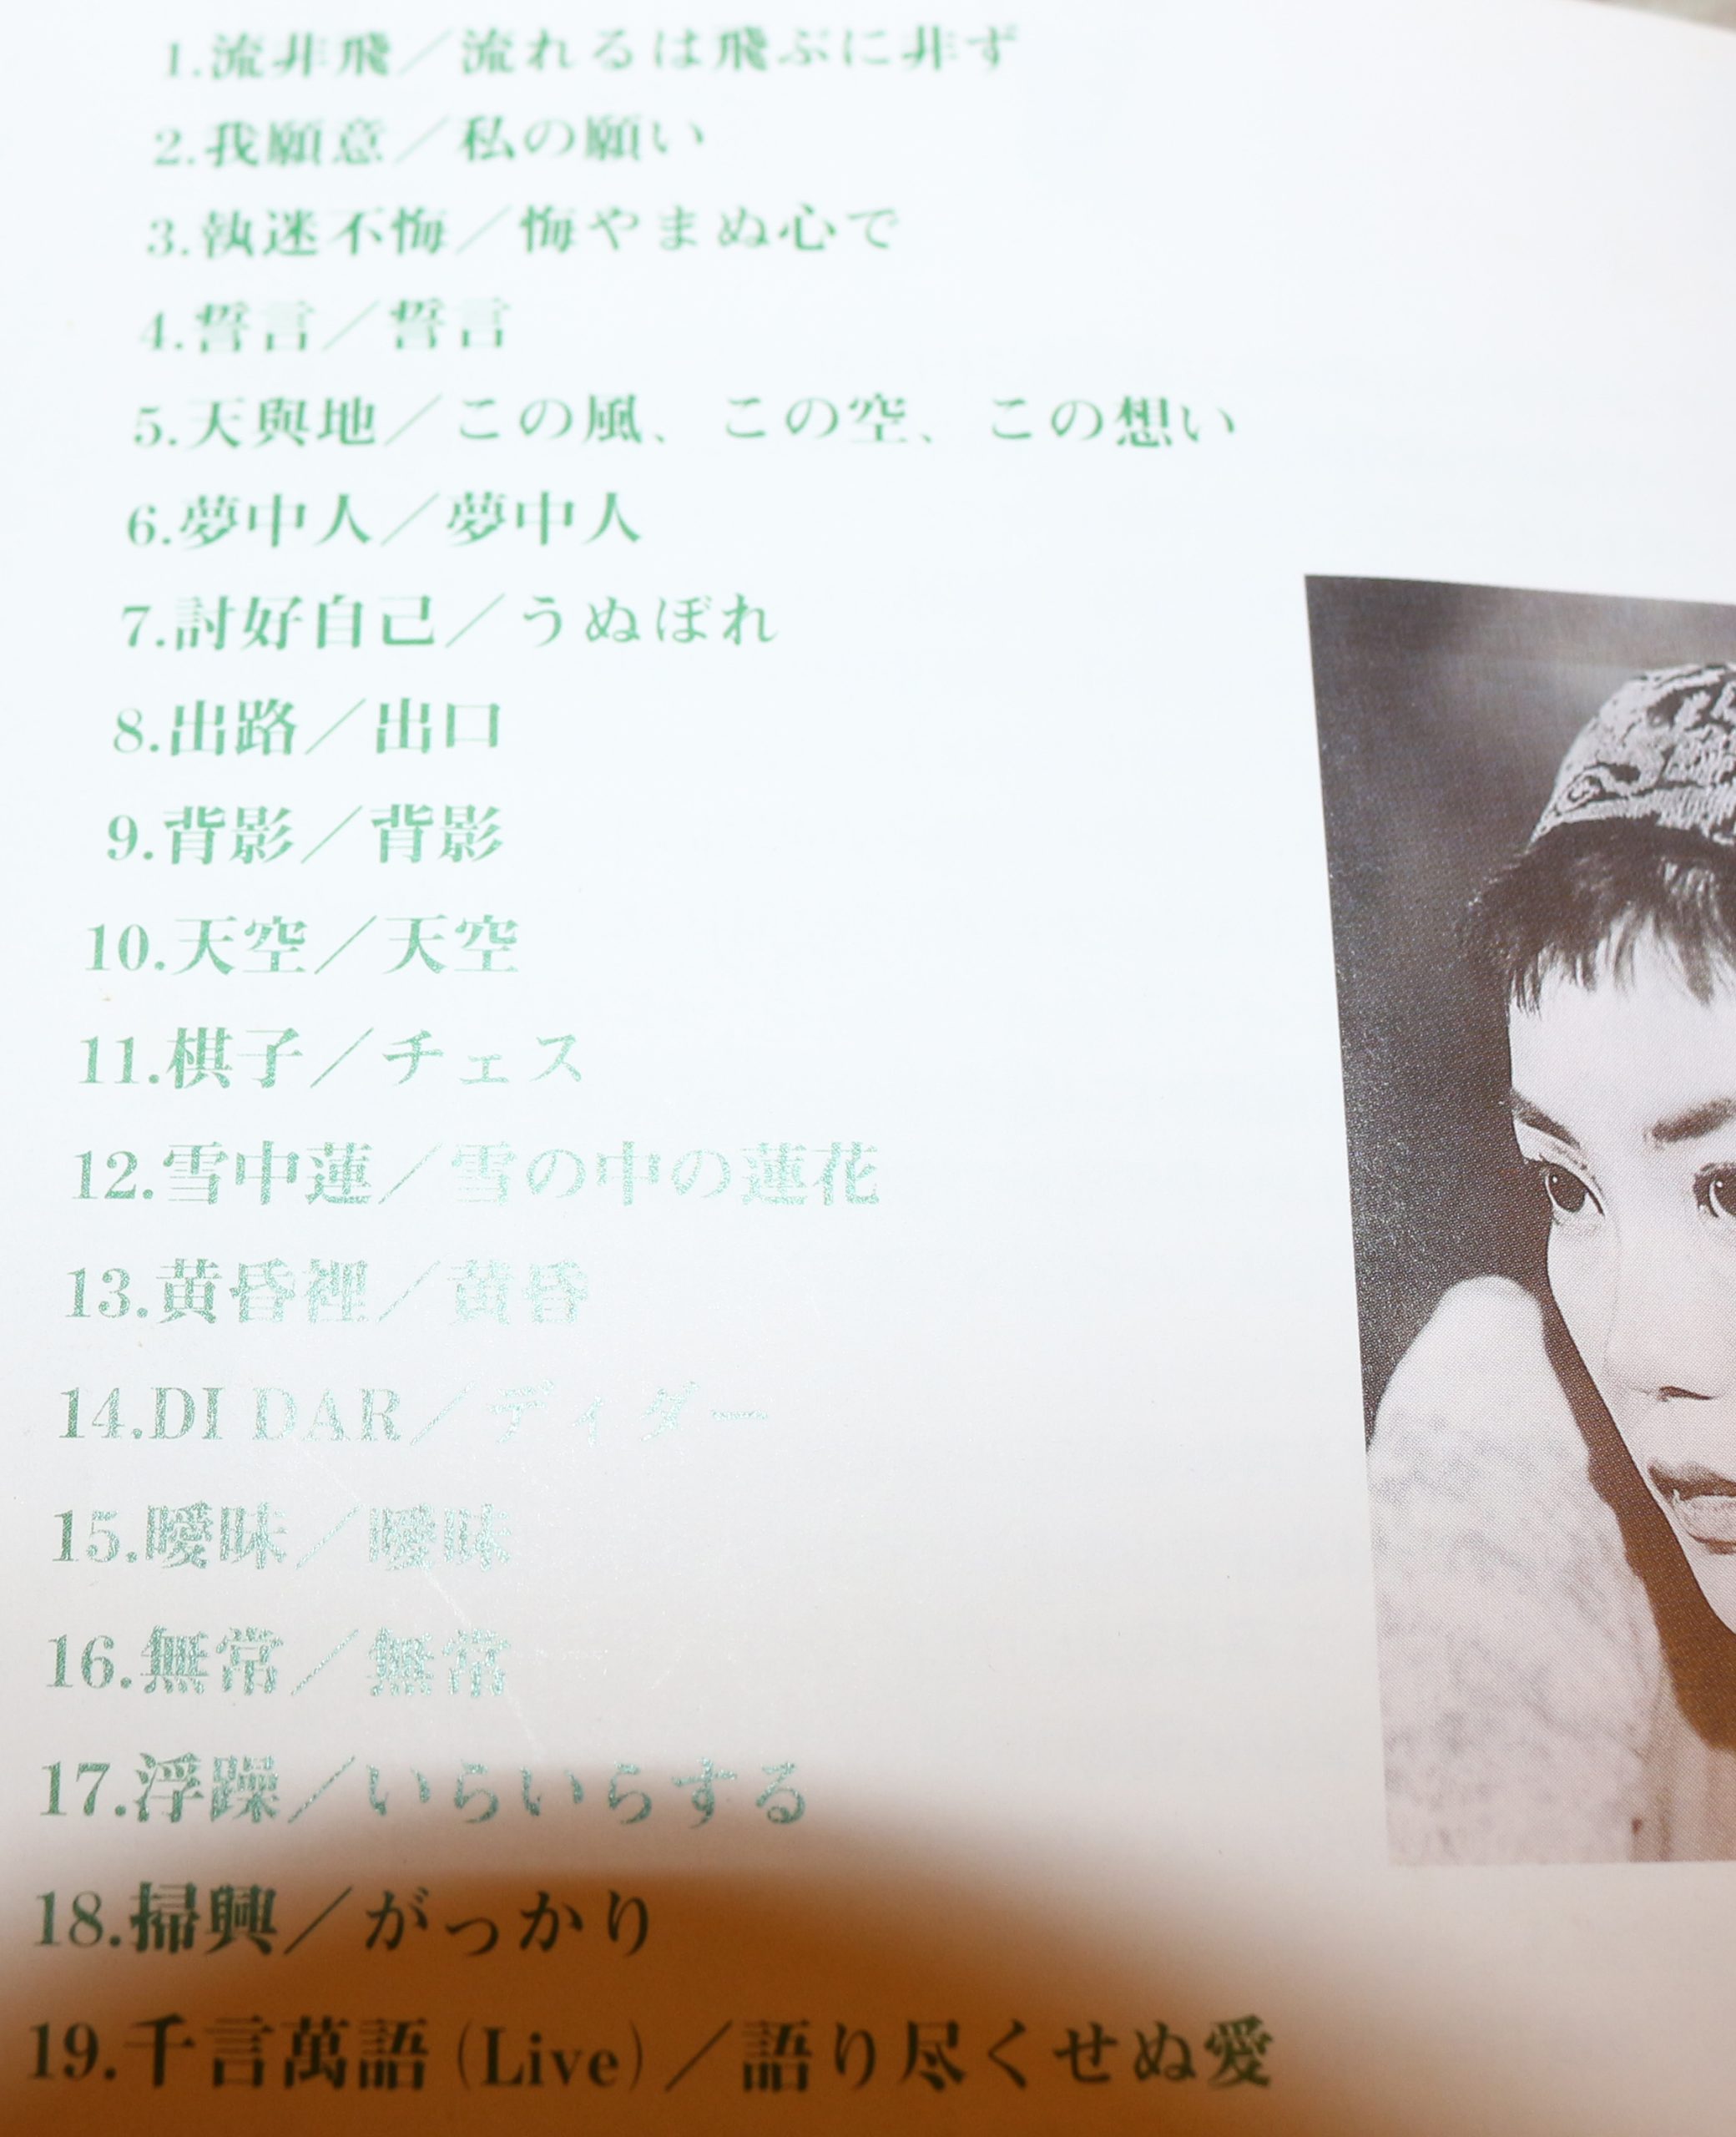 1.流非飛／流れるは飛ぶに非ず
2.我願意／私の願い
3.執迷不悔／悔やまぬ心で
4.誓言／誓言
5.天與地／この風、この空、この想い
6.夢中人／夢中人
7.討好自己／うぬぼれ
8.出路／出口
9.背影／背影
10.天空／天空
11.棋子／チェス
12.雪中蓮／雪の中の蓮花
13.黄昏裡／黄昏
14.DI DAR／ディダー
15.曖昧／曖昧
16.無常／無常
17.浮躁／いらいらする
18.掃興／がっかり
19.千言萬語(Live)／語り尽くせぬ愛